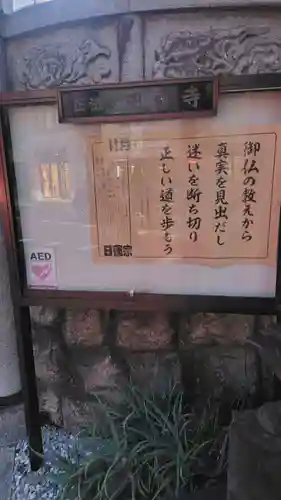 寺
御仏の教えから
真実を見出だし
迷いを断ち切り
正しい道を歩もう
日蓮宗
AED